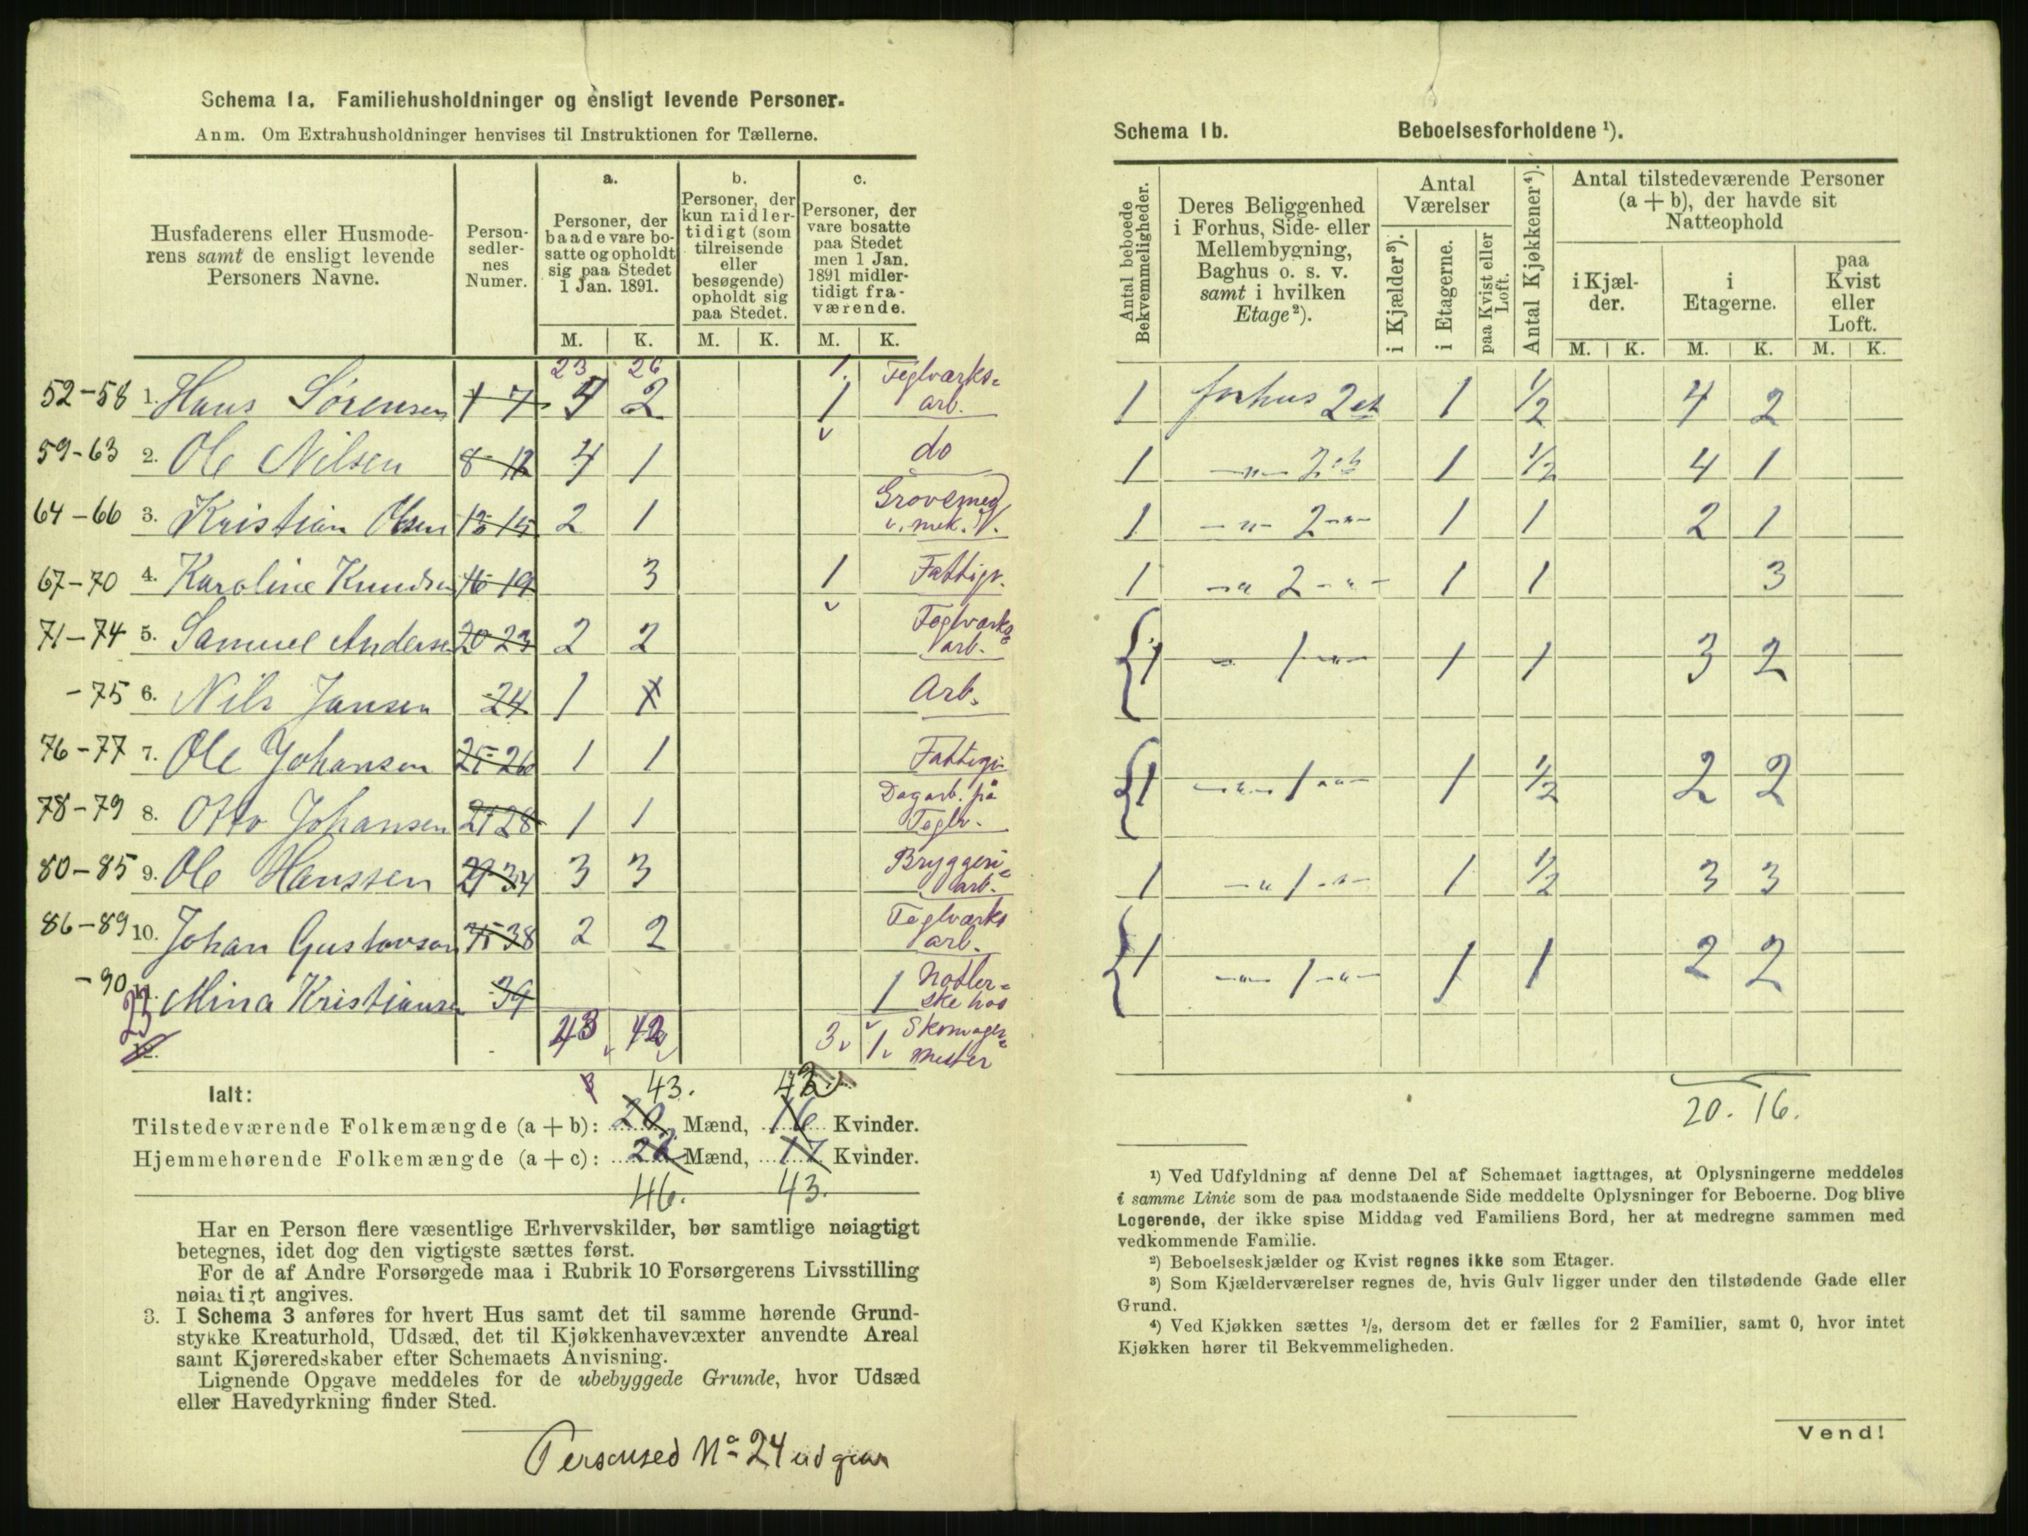 Schema 1a. Familiehusholdninger og ensligt levende Personer.
Anm. Om Extrahusholdninger henvises til Instruktionen for Tællerne.
Husfaderens eller Husmode-
rens samt de ensligt levende
Personers Navne.
Person-
sedler-
nes
Numer.
a.
Personer, der
baade vare bo-
satte og opholdt
sig paa Stedet
1 Jan. 1891.
b.
Personer, der
kun midler-
tidigt (som
tilreisende
eller
besøgende)
opholdt sig
paa Stedet.
c.
Personer, der
vare bosatte
paa Stedet
men 1 Jan.
1891 midler-
tidigt fra-
værende.
M. K. M. K. M. K.
23 26 1.
52-58 1. Hans Sørensen 1 7 4 2 1 Teglværks-
arb.
59-63 2. Ole Nilsen 8-12 4 1 do
64-66 3. Kristian Olsen 13-15 2 1 Grovsmed
v. mek. V.
67-70 4. Karoline Knudsen 16-19 3 1 Fattigv.
71-74 5. Samuel Andersen 20-23 2 2 Teglværks
arb.
-75 6. Nils Jansen 24 1 1 Arb.
76-77 7. Ole Johansen 25-26 1 1
78-79 8. Otto Johansen 27 28 1 1 Dagarb. på
Teglv.
80-85 9. Ole Hanssen 29 34 3 3 Bryggeri-
arb.
86-89 10. Johan Gustavson 35-38 2 2 Teglværks
arb.
-90 11. Mina Kristiansen 39 1
ske hos
23 12. 43 42 3 1 Skomager-
mester
Ialt: 43. 42
Tilstedeværende Folkemængde (a + b): 20 Mænd, 16 Kvinder.
Hjemmehørende Folkemængde (a + c): 22 Mænd, 17 Kvinder.
46. 43.
Har en Person flere væsentlige Erhvervskilder, bør samtlige nøiagtigt
betegnes, idet dog den vigtigste sættes først.
For de af Andre Forsørgede maa i Rubrik 10 Forsørgerens Livsstilling
nøiagtigt angives.
3. I Schema 3 anføres for hvert Hus samt det til samme hørende Grund-
stykke Kreaturhold, Udsæd, det til Kjøkkenhavevæxter anvendte Areal
samt Kjøreredskaber efter Schemaets Anvisning.
Lignende Opgave meddeles for de ubebyggede Grunde, hvor Udsæd
eller Havedyrkning finder Sted.
Personsed No 24 udgaar
Schema 1b. Beboelsesforholdene ¹).
Antal beboede
Bekvemmeligheder.
Deres Beliggenhed
i Forhus, Side- eller
Mellembygning,
Baghus o. s. v.
samt i hvilken
Etage²).
Antal
Værelser
i Kjælder³).
i Etagerne.
paa Kvist eller
Loft.
Antal Kjøkkener⁴).
Antal tilstedeværende Personer
(a + b), der havde sit
Natteophold
i Kjæl-
der.
i
Etagerne.
paa
Kvist
eller
Loft.
M. K. M. K. M. K.
1 forhus 2 et 1 1/2 4 2
1 -"- 2 et 1 1/2 4 1
1 -"- 2 -"- 1 1 2 1
1 -"- 2 -"- 1 1 3
1 - 1 -"- 1 1 3 2
1 -"- 1 -"- 1 1/2 2 2
1 -"- 1 -"- 1 1/2 3 3
1 -"- 1 -"- 1 1 2 2
20. 16.
¹) Ved Udfyldning af denne Del af Schemaet iagttages, at Oplysningerne meddeles
i samme Linie som de paa modstaaende Side meddelte Oplysninger for Beboerne. Dog blive
Logerende, der ikke spise Middag ved Familiens Bord, her at medregne sammen med
vedkommende Familie.
²) Beboelseskjælder og Kvist regnes ikke som Etager.
³) Som Kjælderværelser regnes de, hvis Gulv ligger under den tilstødende Gade eller
Grund.
⁴) Ved Kjøkken sættes ¹/₂, dersom det er fælles for 2 Familier, samt 0, hvor intet
Kjøkken hører til Bekvemmeligheden.
Vend!